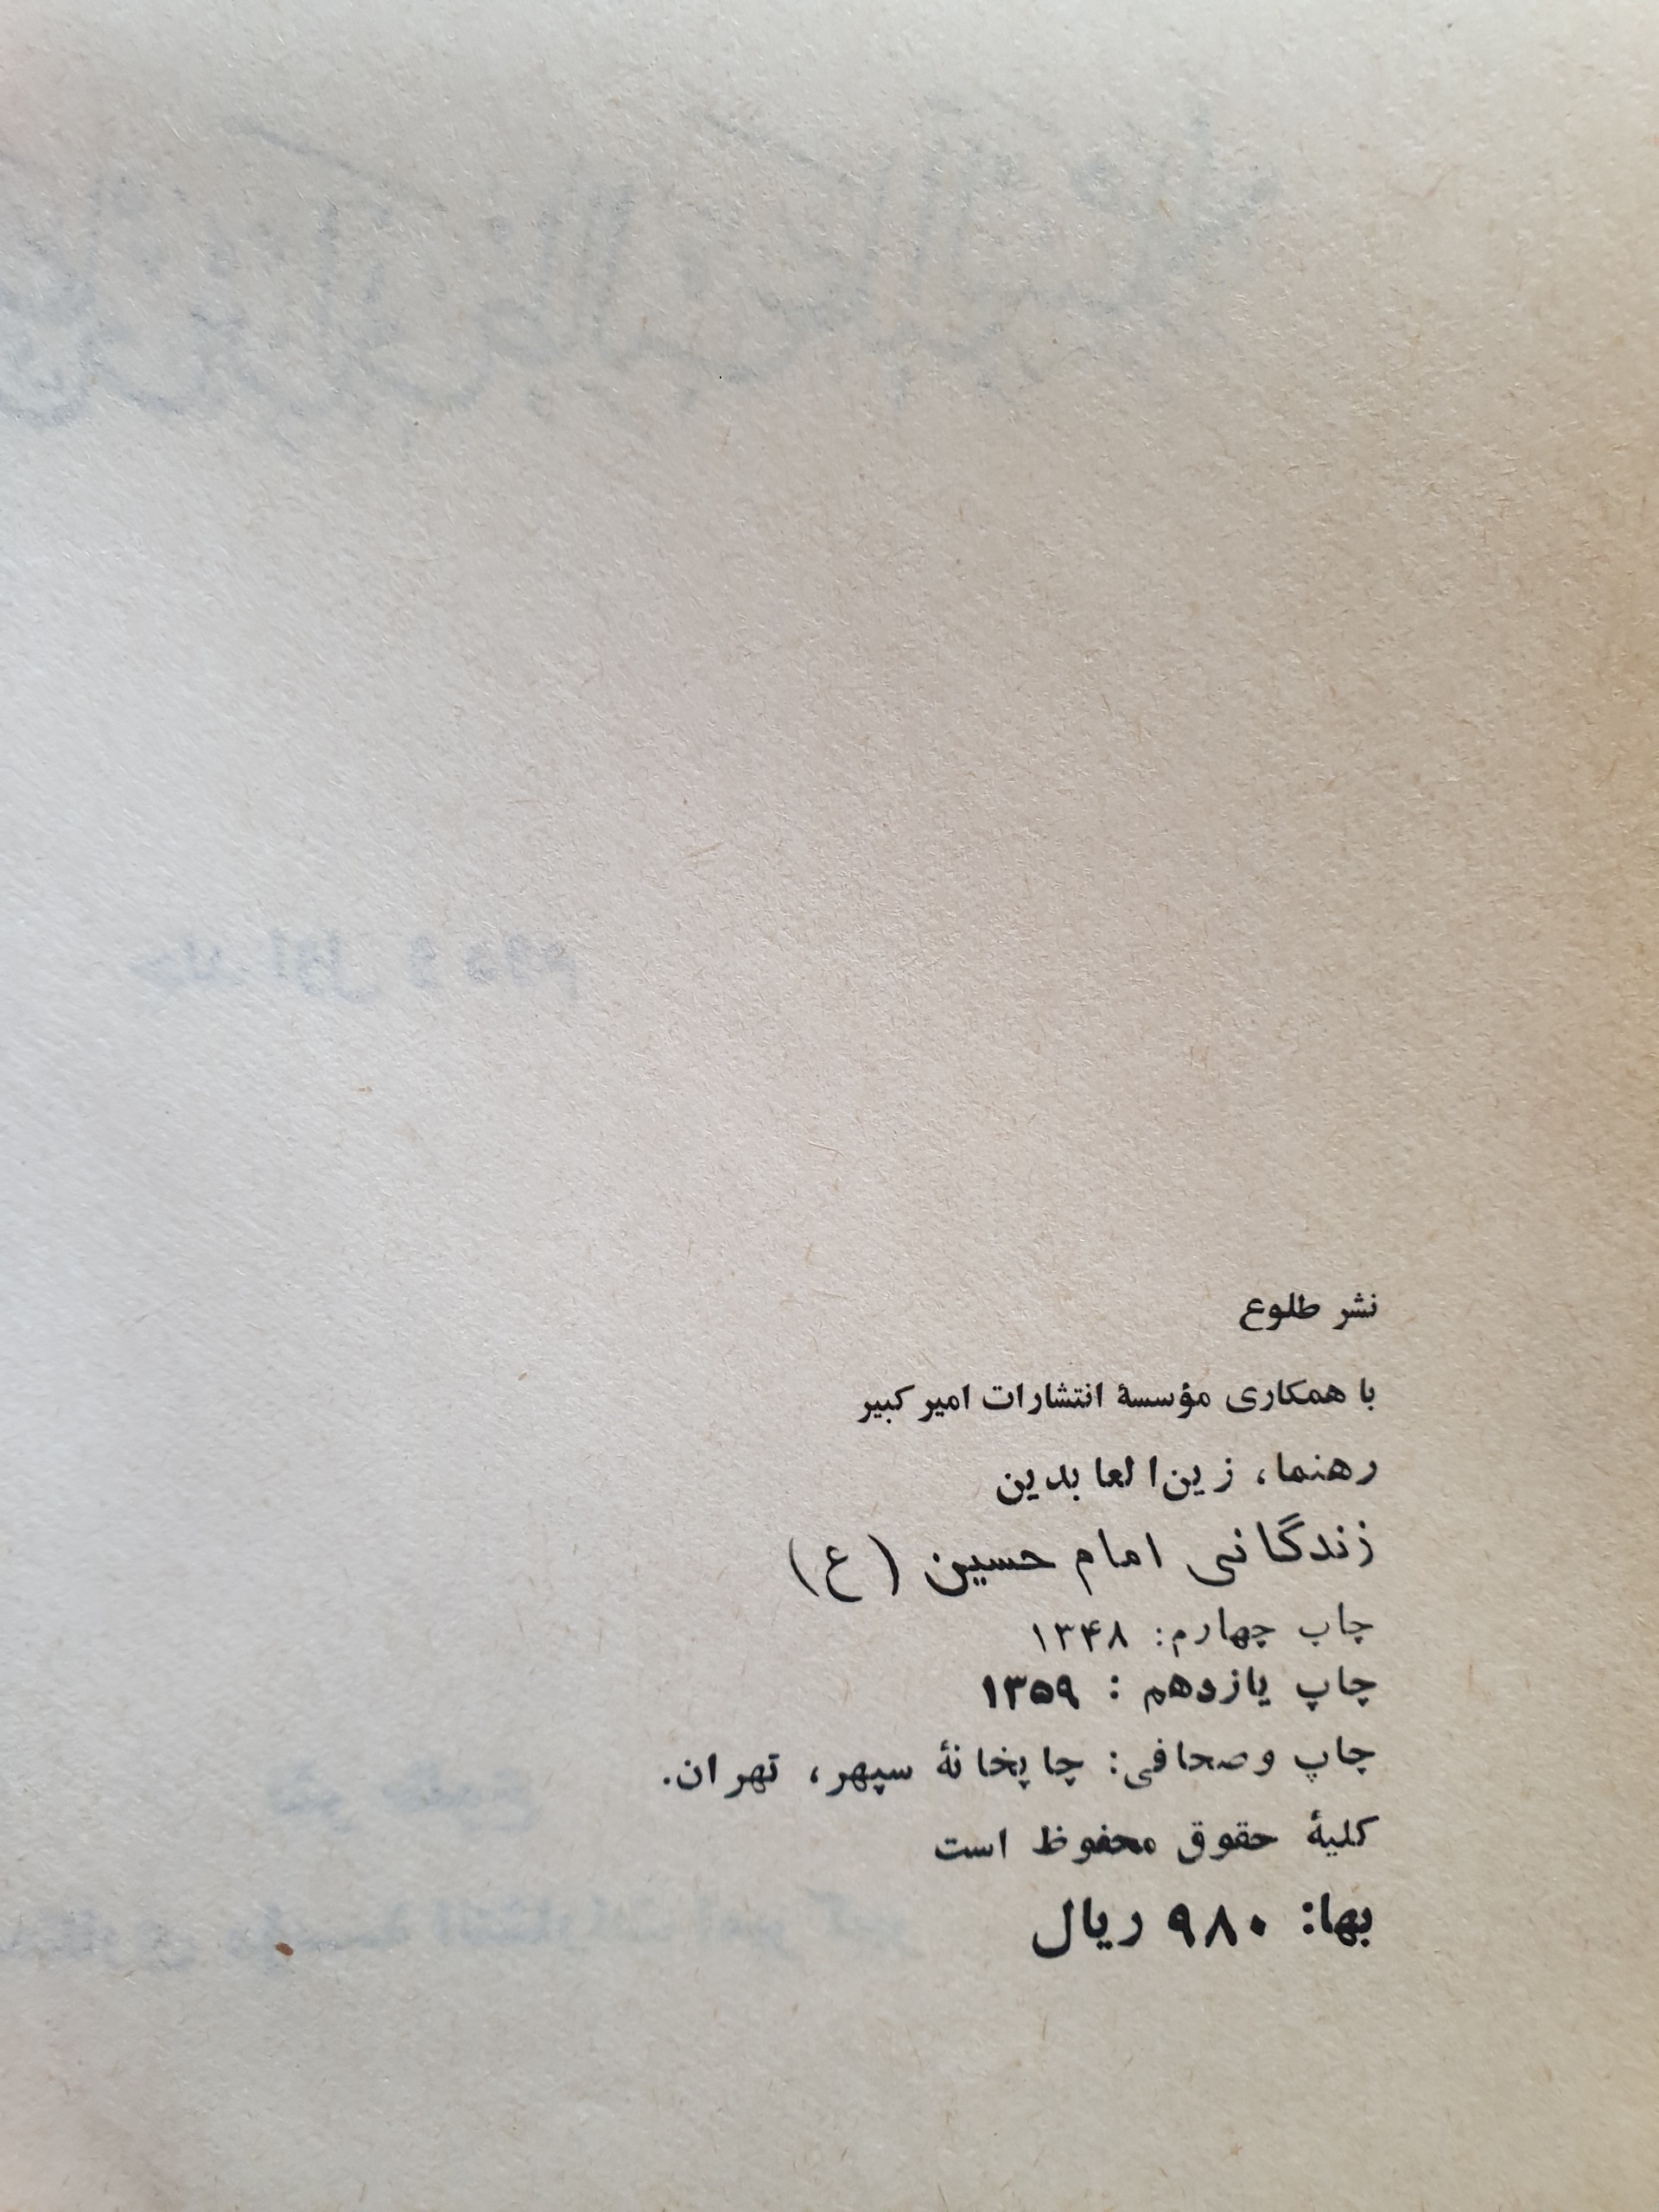 نشر طلوع
با همکاری مؤسسهٔ انتشارات امیرکبیر
رهنما، زین‌العابدین
زندگانی امام حسین (ع)
چاپ چهارم: ۱۳۴۸
چاپ یازدهم : ۱۳۵۹
چاپ وصحافی: چاپخانهٔ سپهر، تهران.
کلیهٔ حقوق محفوظ است
بها: ۹۸۰ ریال